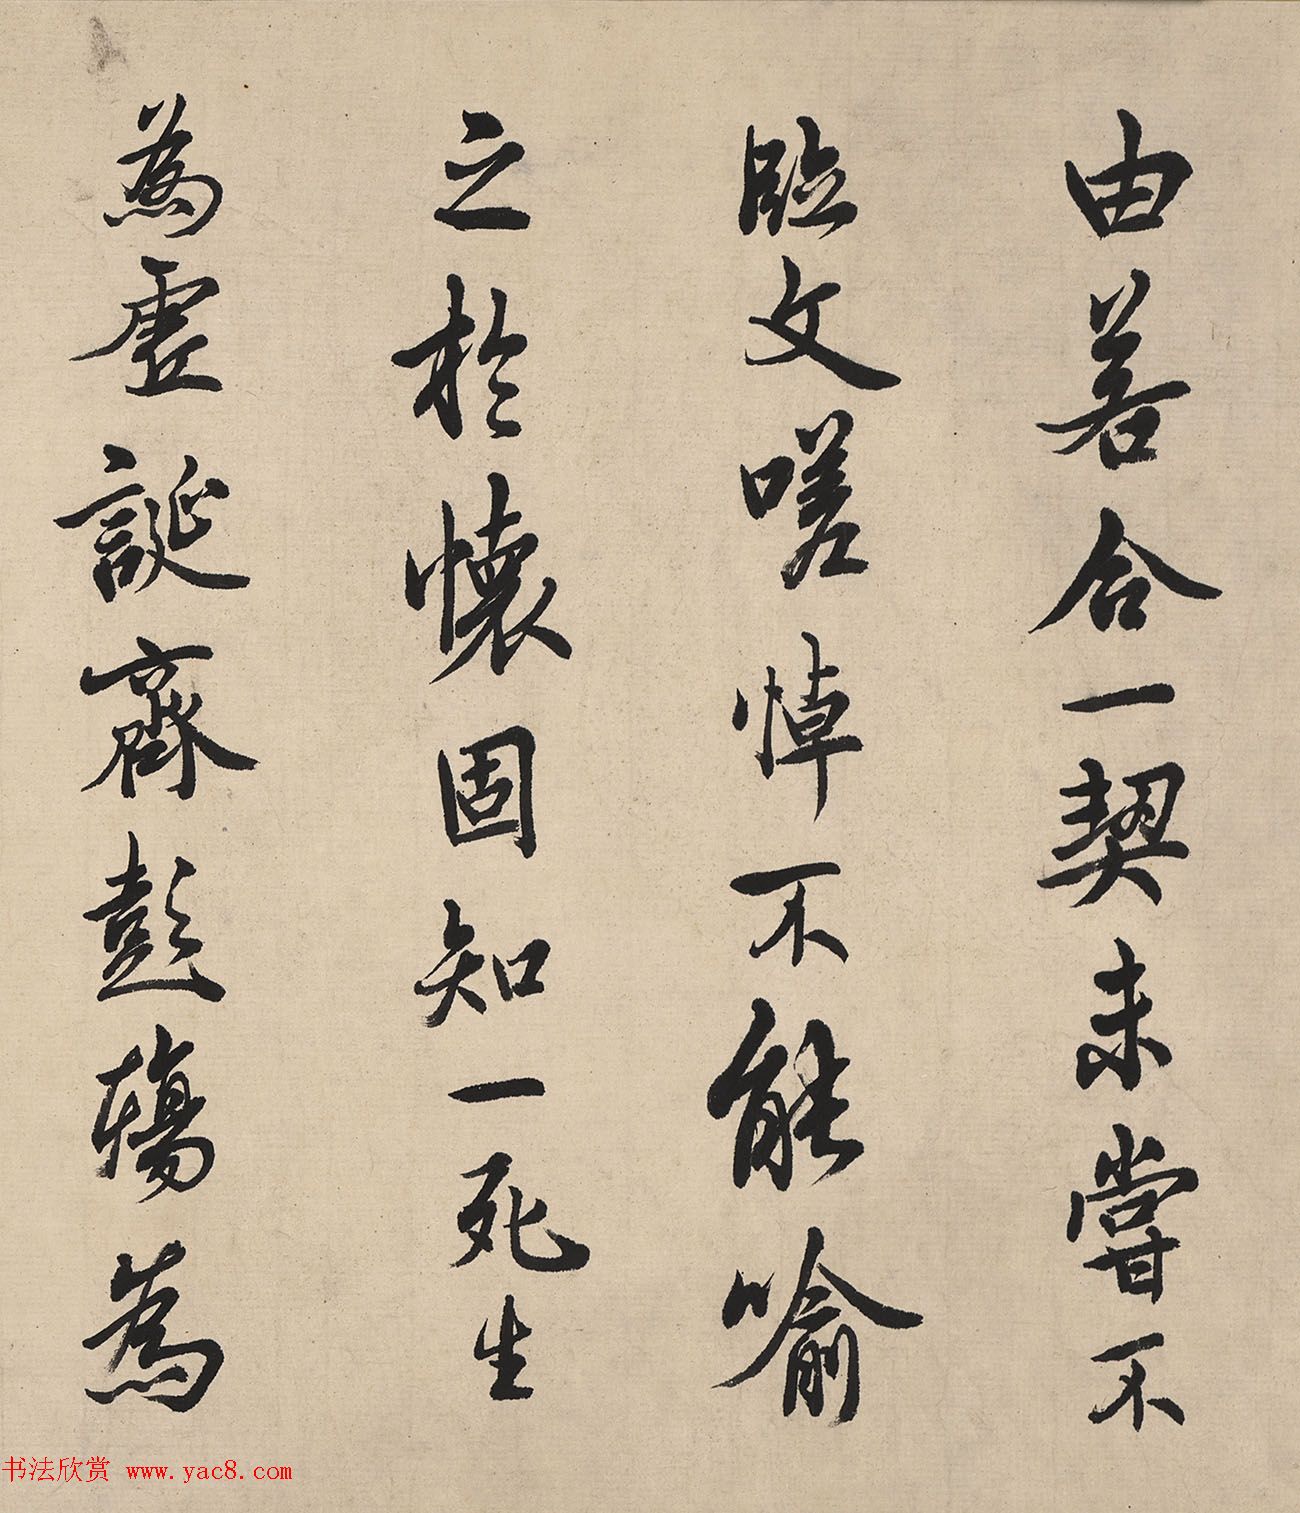 由若合一契未嘗不
臨文嗟悼不能喻
之於懷固知一死生
為虛誕齊彭殤為
书法欣赏 www.yac8.com